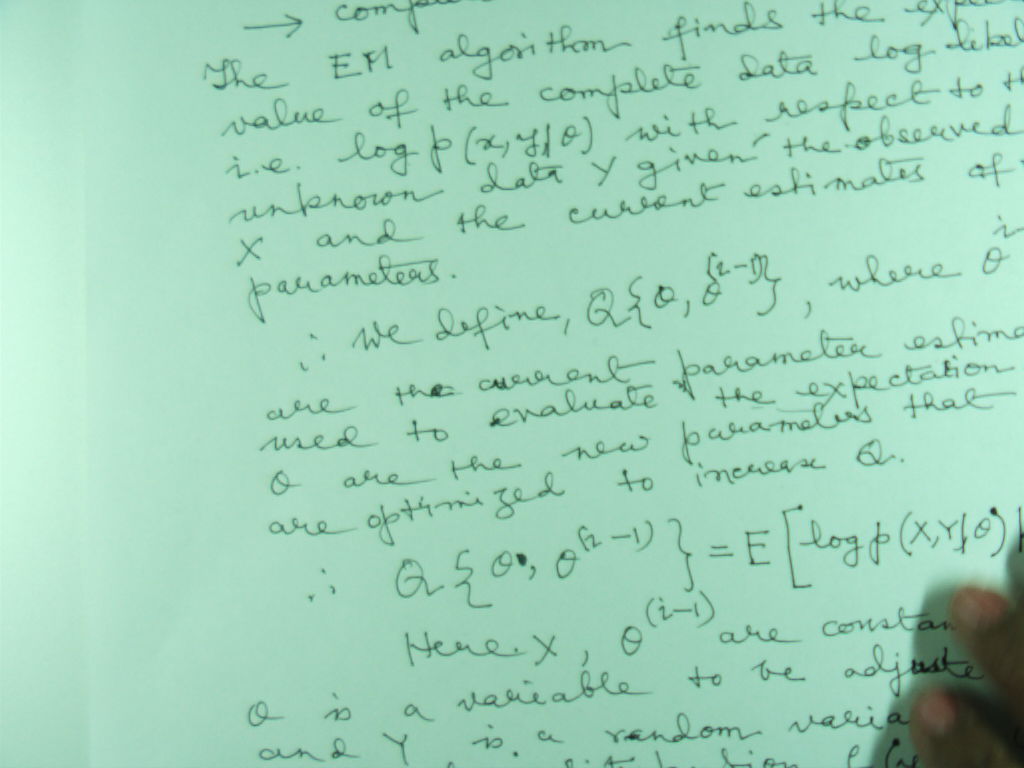 →
The EM algorithm finds the
value of the complete data log
i.e. log p(x,y|θ) with respect to
unknown data Y given the observed
X and the current estimates of
parameters.
∴ We define, Q{θ, θ^{(i-1)}}, where θ^{i-
are the current parameter
used to evaluate the expectation
θ are the new parameters that
are optimized to increase Q.
∴ Q{θ, θ^{(i-1)}} = E[log p(X,Y|θ)|
Here X, θ^{(i-1)} are
θ is a variable to be
and Y is a random